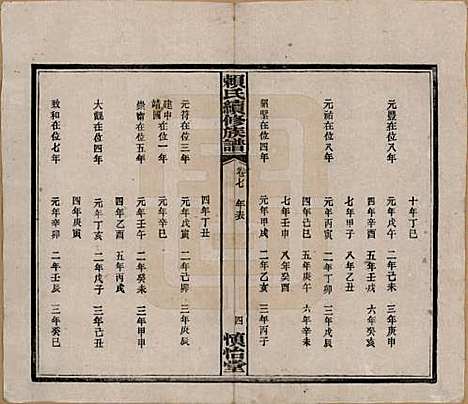 十年丁巳
元豐在位八年
元年戊午 二年己未 三年庚申
四年辛酉 五年壬戌 六年癸亥
七年甲子 八年乙丑
元祐在位八年
元年丙寅 二年丁卯 三年戊辰
四年己巳 五年庚午 六年辛未
七年壬申 八年癸酉
紹聖在位四年
元年甲戌 二年乙亥 三年丙子
賴氏續修族譜
卷七 年表
四
慎怡堂
四年丁丑
元符在位三年
元年戊寅 二年己卯 三年庚辰
建中靖國在位一年
元年辛巳
崇甯在位五年
元年壬午 二年癸未 三年甲申
四年乙酉 五年丙戌
大觀在位四年
元年丁亥 二年戊子 三年己丑
四年庚寅
致和在位七年
元年辛卯 二年壬辰 三年癸巳